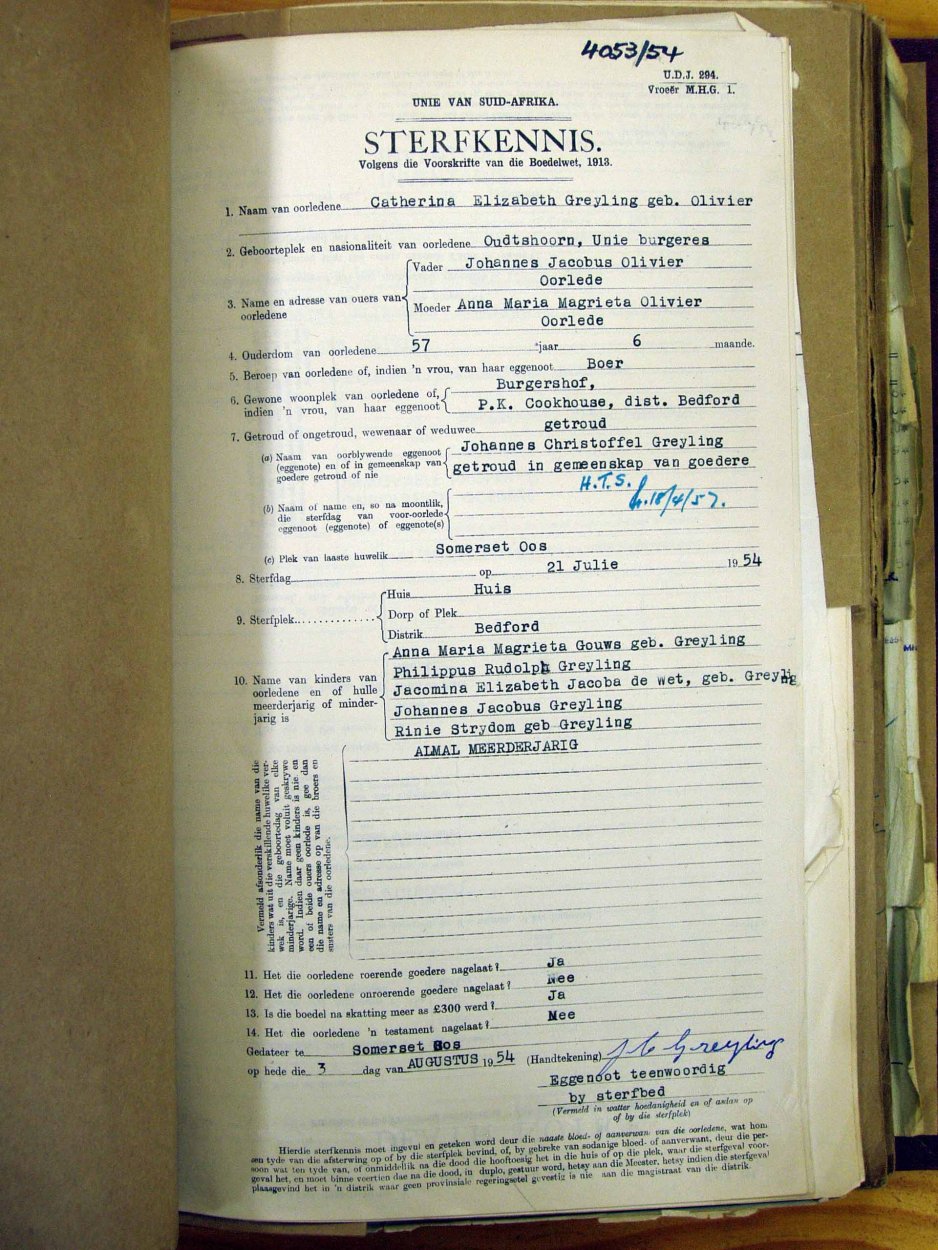 4053/54
U.D.J. 294.
Vroeër M.H.G. 1.
UNIE VAN SUID-AFRIKA.
STERFKENNIS.
Volgens die Voorskrifte van die Boedelwet, 1913.
1. Naam van oorledene Catherina Elizabeth Greyling geb. Olivier
2. Geboorteplek en nasionaliteit van oorledene Oudtshoorn, Unie burgeres
3. Name en adresse van ouers van oorledene
Vader Johannes Jacobus Olivier
Oorlede
Moeder Anna Maria Magrieta Olivier
Oorlede
4. Ouderdom van oorledene 57 jaar 6 maande.
5. Beroep van oorledene of, indien 'n vrou, van haar eggenoot Boer
6. Gewone woonplek van oorledene of, indien 'n vrou, van haar eggenoot
Burgershof,
P.K. Cookhouse, dist. Bedford
7. Getroud of ongetroud, wewenaar of weduwee getroud
(a) Naam van oorblywende eggenoot (eggenote) en of in gemeenskap van goedere getroud of nie
Johannes Christoffel Greyling
getroud in gemeenskap van goedere
H.T.S.
18/4/57.
(b) Naam of name en, so na moontlik, die sterfdag van voor-oorlede eggenoot (eggenote) of eggenote(s)
(c) Plek van laaste huwelik Somerset Oos
8. Sterfdag op 21 Julie 1954
9. Sterfplek
Huis Huis
Dorp of Plek
Distrik Bedford
10. Name van kinders van oorledene en of hulle meerderjarig of minder-jarig is
Anna Maria Magrieta Gouws geb. Greyling
Philippus Rudolph Greyling
Jacomina Elizabeth Jacoba de Wet, geb. Greyling
Johannes Jacobus Greyling
Rinie Strydom geb Greyling
ALMAL MEERDERJARIG
Vermeld afsonderlik die name van die
kinders wat uit die verskillende huwelike ver-
wek is, en die geboortedag van elke
minderjarige. Name moet voluit geskrywe
word. Indien daar geen kinders is nie en
een of beide ouers oorlede is, gee dan
die name en adresse op van die broers en
susters van die oorledene.
11. Het die oorledene roerende goedere nagelaat? Ja
12. Het die oorledene onroerende goedere nagelaat? Nee
13. Is die boedel na skatting meer as £300 werd? Ja
14. Het die oorledene 'n testament nagelaat? Nee
Gedateer te Somerset Oos
op hede die 3 dag van AUGUSTUS 1954 (Handtekening) J C Greyling
Eggenoot teenwoordig
by sterfbed
(Vermeld in watter hoedanigheid en of aldan op
of by die sterfplek)
Hierdie sterfkennis moet ingevul en geteken word deur die naaste bloed- of aanverwant van die oorledene, wat hom
een tyde van die afsterwing op of by die sterfplek bevind, of, by gebreke van sodanige bloed- of aanverwant, deur die per-
soon wat ten tyde van, of onmiddellik na die dood die hooftoesig het in die huis of op die plek, waar die sterfgeval voor-
geval het, en moet binne veertien dae na die dood, in duplo, gestuur word, hetsy aan die Meester, hetsy indien die sterfgeval
plaasgevind het in 'n distrik waar geen provinsiale regeringsetel gevestig is nie aan die magistraat van die distrik.